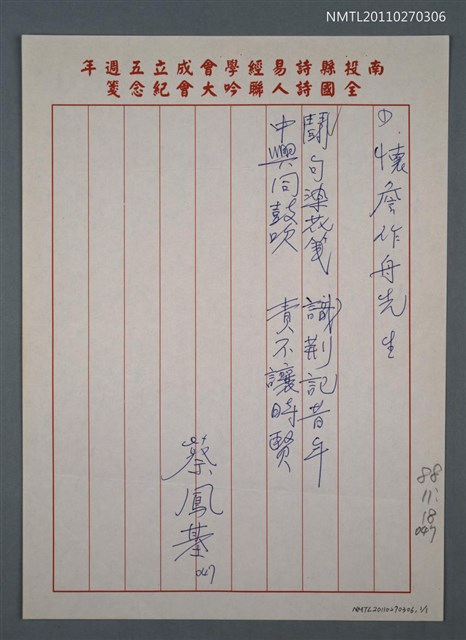 NMTL20110270306
南投縣詩易經學會成立五週年
全國詩人聯吟大會紀念箋
①.懷詹作舟先生
鬪句濤花箋 識荆記昔年
中興同鼓吹 責不讓時賢
蔡鳳基
047
88.
11.
18
047
NMTL20110270306, 1/1